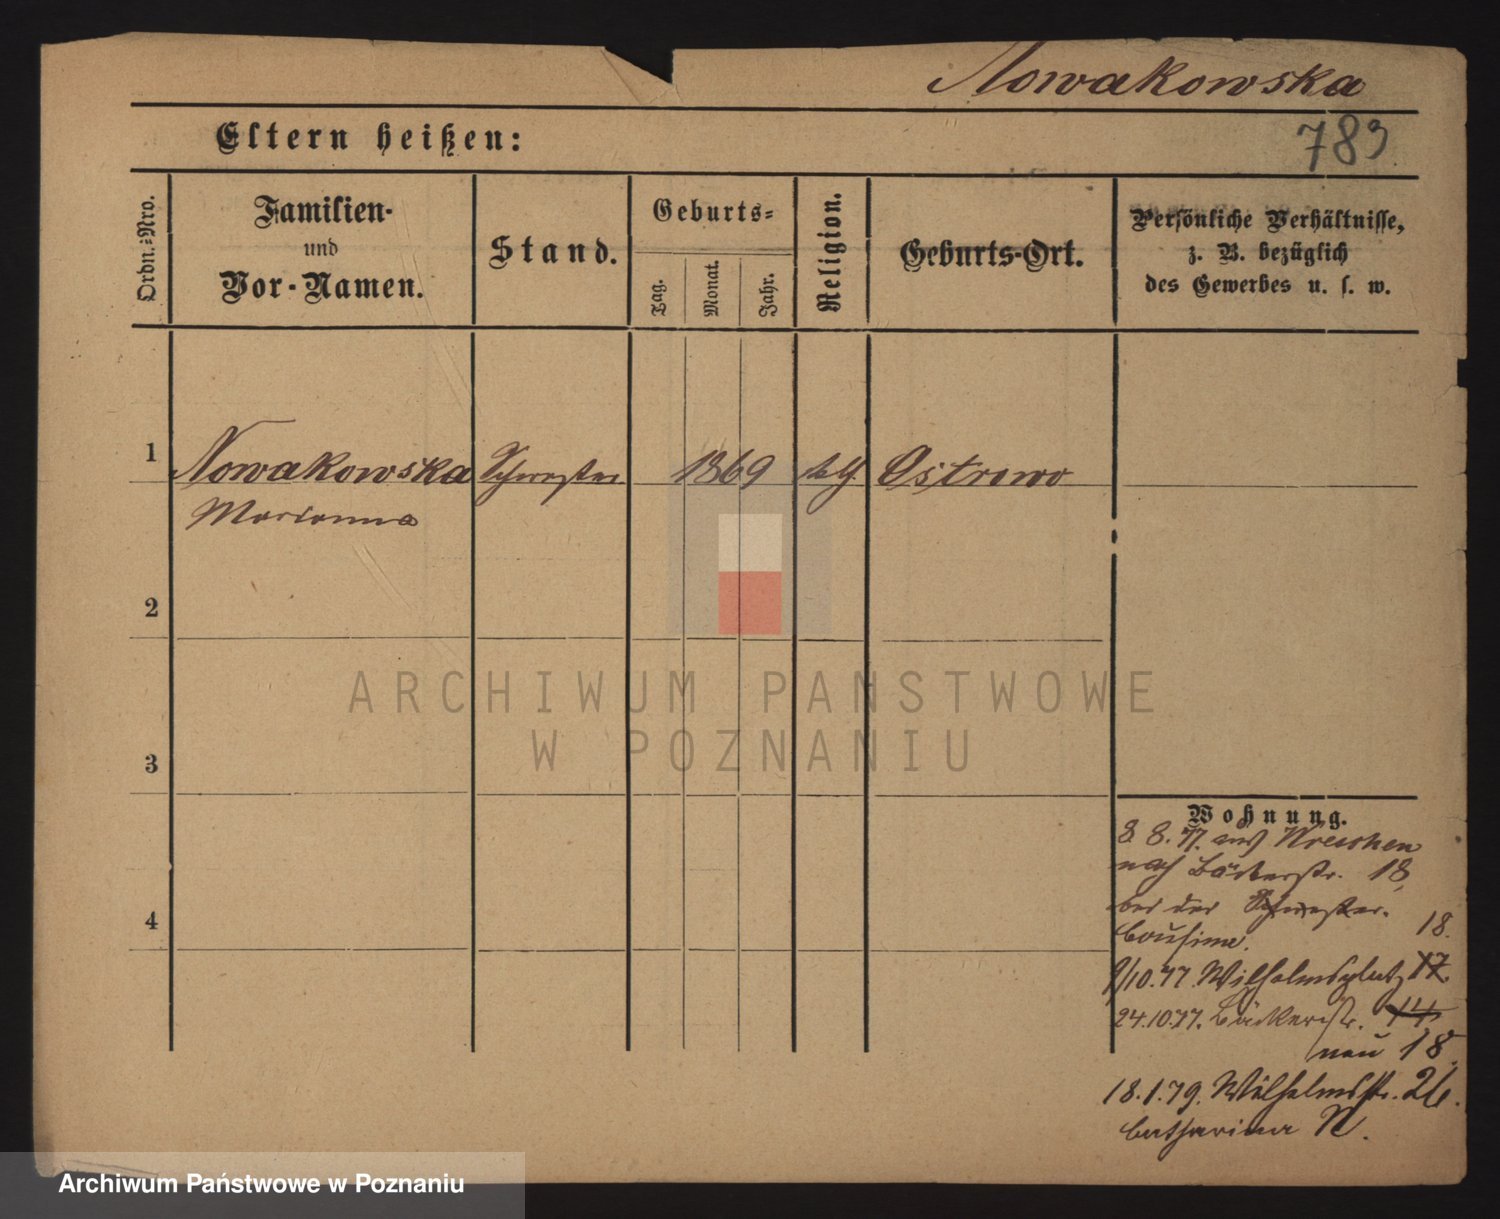 Nowakowska
783
Eltern heißen:
Ordn.=Nro.
Familien-
und
Vor-Namen.
Stand.
Geburts=
Tag.
Monat.
Jahr.
Religion.
Geburts-Ort.
Persönliche Verhältnisse,
z. B. bezüglich
des Gewerbes u. s. w.
1
Nowakowska Schwester 1869 kth. Ostrowo
Marianna
2
3
4
Wohnung.
8. 8. 77. aus Wreschen
nach Bäckerstr. 18,
bei der Schwester.
18.
9/10. 77. Wilhelmsplatz 17.
24.10.77. Bäckerstr. 14
neu 18.
18.1.79. Wilhelmsstr. 26.
Catharina N.
ARCHIWUM PANSTWOWE
W POZNANIU
Archiwum Państwowe w Poznaniu